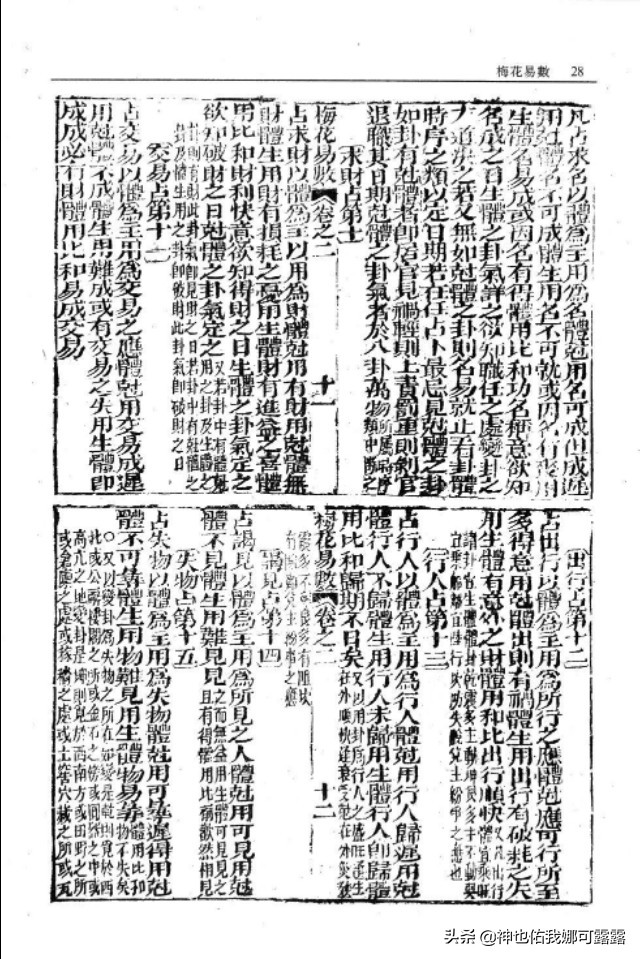 梅花易數 28
凡占求名以體為主用為名體尅用名可成但成遲
用尅體名不可成體生用名不可就或因名有喪用
生體名易成或因名有得體用比和功名稱意欲知
名成之日生體之卦氣詳之欲知職任之處變卦之
方道決之若又無如尅體之卦則名易就止看卦體
時序之類以定日期若在任占卜最忌見尅體之卦
如卦有尅體者即居官見禍輕則上責罰重則剝官
退職其日期尅體之卦氣者於八卦萬物所屬時序類中斷之
求財占第十
梅花易數 卷之二 十一
占求財以體為主以用為財體尅用有財用尅體無
財體生用財有損耗之憂用生體財有進益之喜體
用比和財利快意欲知得財之日生體之卦氣定之
欲知破財之日尅體之卦氣定之又若卦中有體尅用之卦及生體之
卦則有財此卦氣即見財之日若卦中有尅體之
卦及體生用之卦即破財此卦氣即破財之日
交易占第十一
占交易以體為主用為交易之應體尅用交易成遲
用尅體不成體生用難成或有交易之失用生體即
成成必有財體用比和易成交易
出行占第十二
占出行以體為主用為所行之應體尅應可行所至
多得意用尅體出則有禍體生用出行有破耗之失
用生體有意外之財體用和比出行順快又凡出行體宜乘旺
諸卦宜生體體卦乾震多主動坤艮多主不動巽
宜舟行離宜陸行坎防失脫兌主紛爭之應也
行人占第十三
占行人以體為主用為行人體尅用行人歸遲用尅
體行人不歸體生用行人未歸用生體行人即歸體
用比和歸期不日矣又以用卦看行人之在外逢生
在外順快逢衰受尅在外災殃
梅花易數 卷之二 十二
震多不寧艮多有阻坎
有險難兌主紛爭之應
謁見占第十四
占謁見以體為主用為所見之人體尅用可見用尅
體不見體生用難見見之而無益用生體可見見之
且有得體用比稱歡然相見
失物占第十五
占失物以體為主用為失物體尅用可尋遲得用尅
體不可尋體生用物難見用生體物易尋體用比和
物不失矣
○又以變卦為失物之所在如變是乾則覓於西
北或公廨樓閣之所或金石之傍或圓器之中或
高亢之地變卦是坤則覓於西南方或田野之所
或倉廩之處或稼穡之處或土窖穴藏之所或瓦
头条 @神也佑我娜可露露